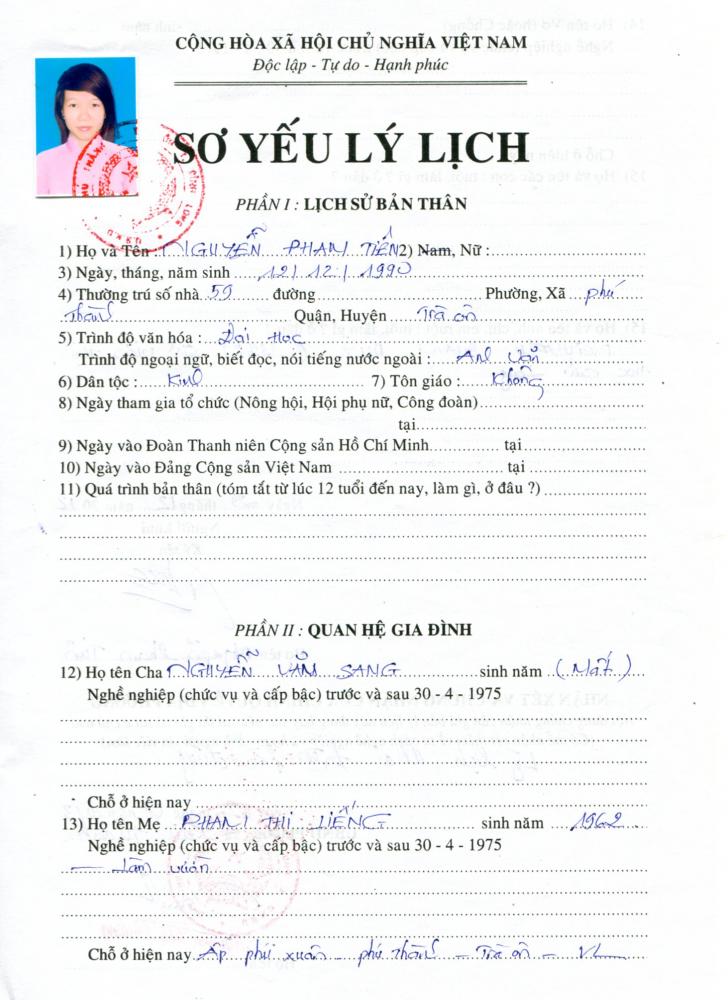 CỘNG HÒA XÃ HỘI CHỦ NGHĨA VIỆT NAM
Độc lập - Tự do - Hạnh phúc
SƠ YẾU LÝ LỊCH
PHẦN I : LỊCH SỬ BẢN THÂN
1) Họ và Tên : NGUYỄN PHAN TIẾN 2) Nam, Nữ :
3) Ngày, tháng, năm sinh 12 / 12 / 1990
4) Thường trú số nhà 59 đường Phường, Xã phú
Thành Quận, Huyện Trà ôn
5) Trình độ văn hóa : Đại học
Trình độ ngoại ngữ, biết đọc, nói tiếng nước ngoài : Anh văn
6) Dân tộc : Kinh 7) Tôn giáo : Không
8) Ngày tham gia tổ chức (Nông hội, Hội phụ nữ, Công đoàn)
tại
9) Ngày vào Đoàn Thanh niên Cộng sản Hồ Chí Minh tại
10) Ngày vào Đảng Cộng sản Việt Nam tại
11) Quá trình bản thân (tóm tắt từ lúc 12 tuổi đến nay, làm gì, ở đâu ?)
PHẦN II : QUAN HỆ GIA ĐÌNH
12) Họ tên Cha NGUYỄN VĂN SANG sinh năm (Mất)
Nghề nghiệp (chức vụ và cấp bậc) trước và sau 30 - 4 - 1975
Chỗ ở hiện nay
13) Họ tên Mẹ PHAN THỊ LIẾNG sinh năm 1962
Nghề nghiệp (chức vụ và cấp bậc) trước và sau 30 - 4 - 1975
- Làm vườn
Chỗ ở hiện nay Ấp phú xuân - phú Thành - Trà ôn - VL